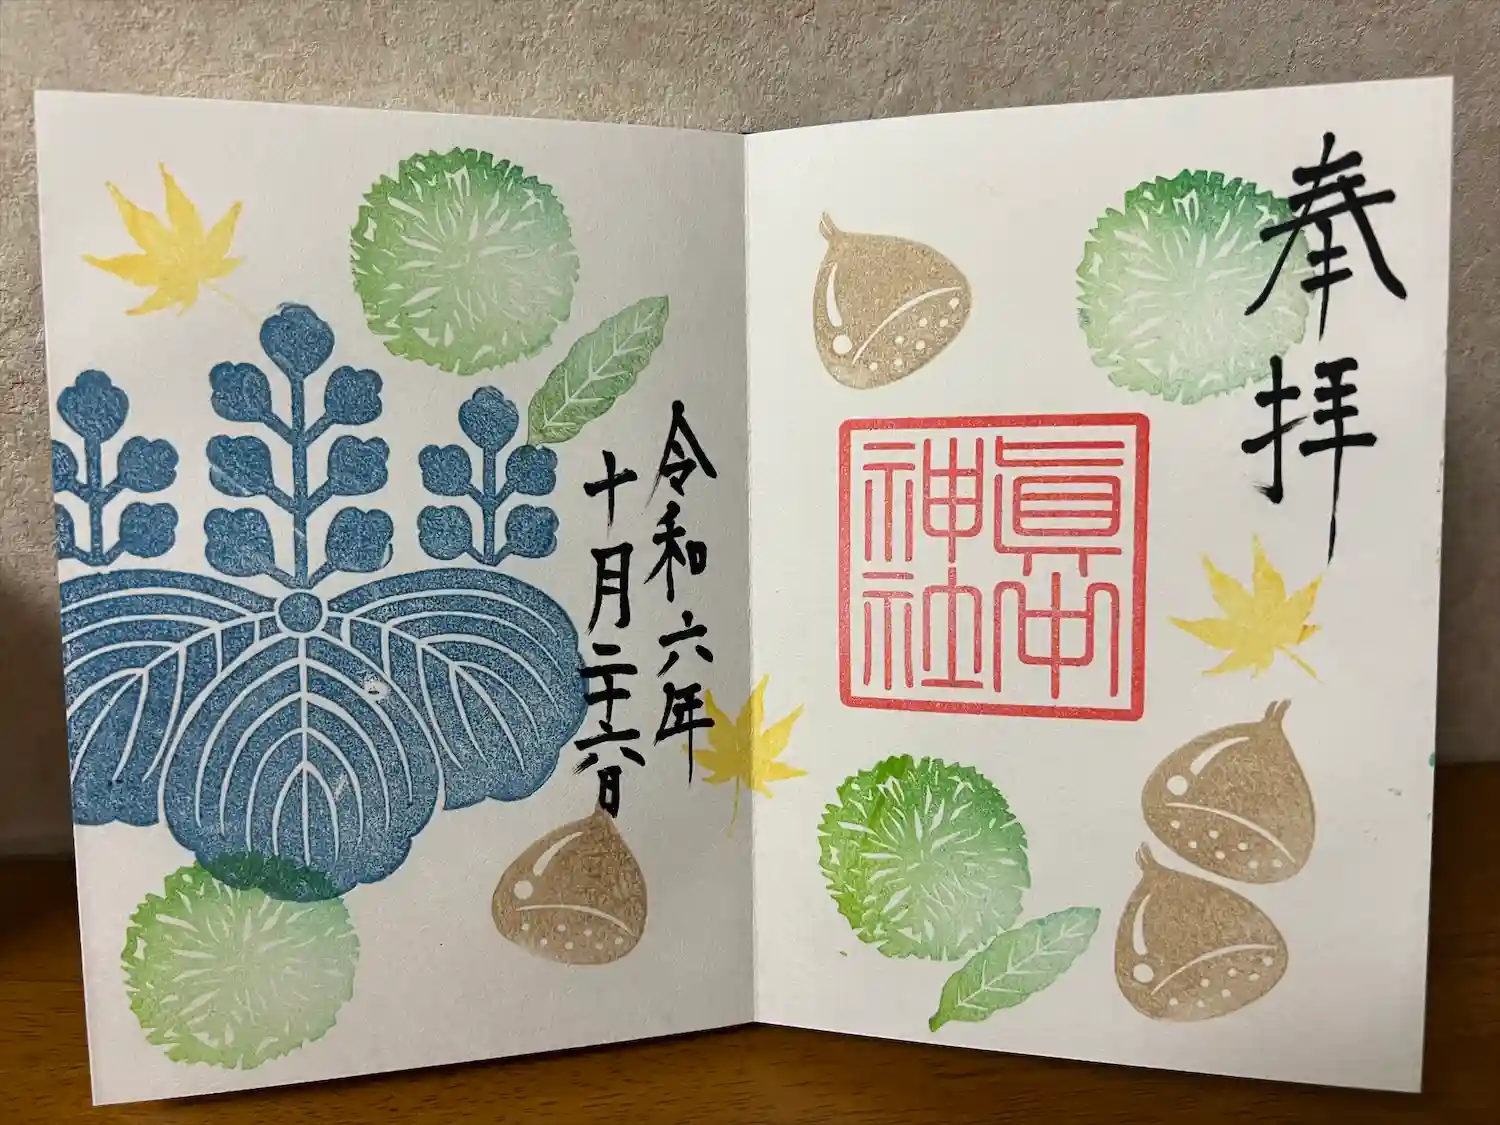 奉拝
眞中
神社
令和六年
十月二十六日